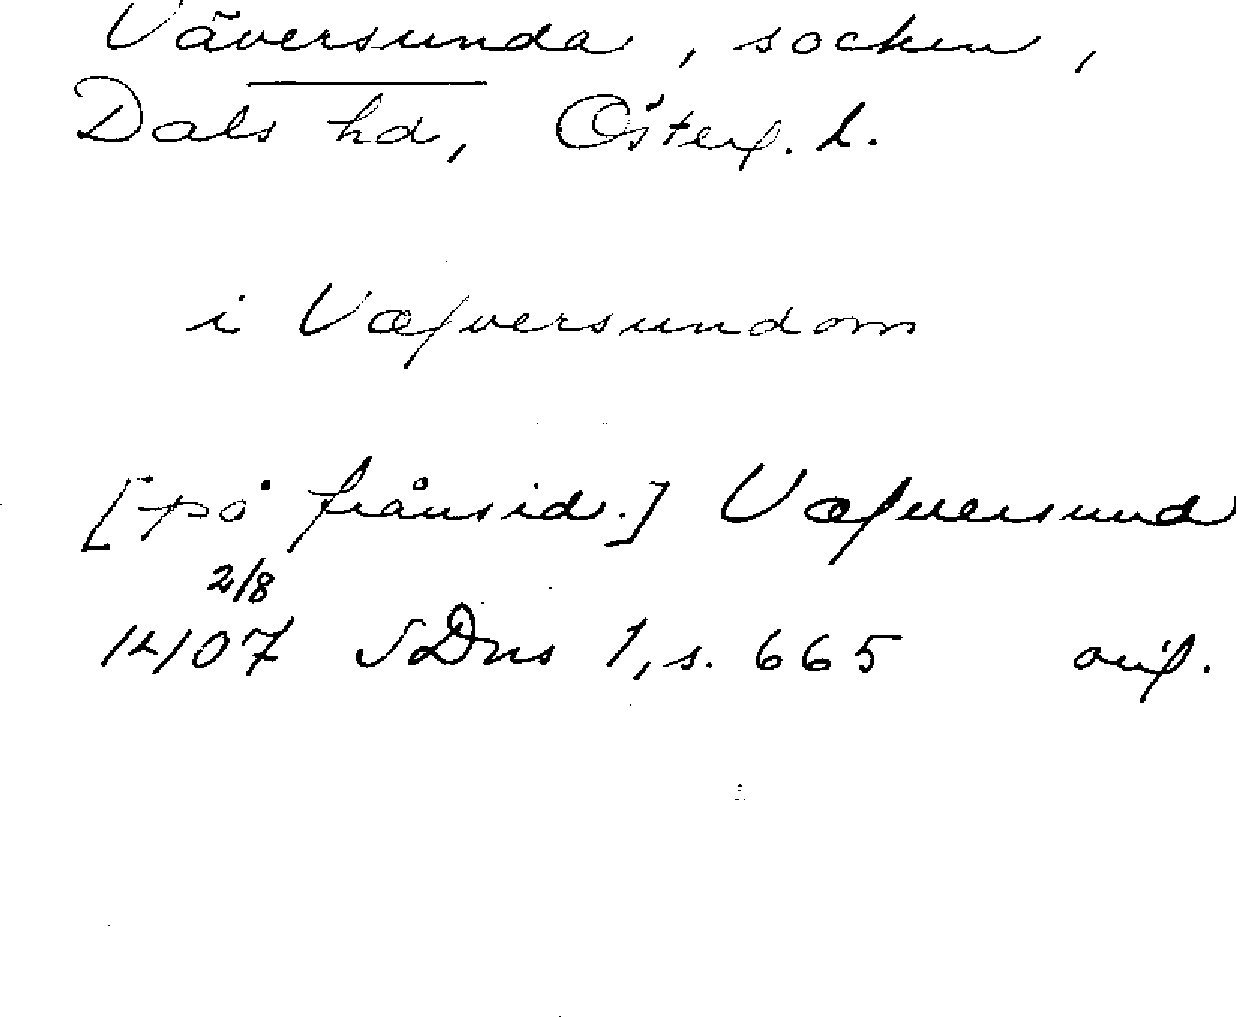 Väversunda, socken,
Dals hd, Österg. L.
i Væfversundom
[på frånsid.] Væfversund
2/8
1407 SDns 1, s. 665 orig.